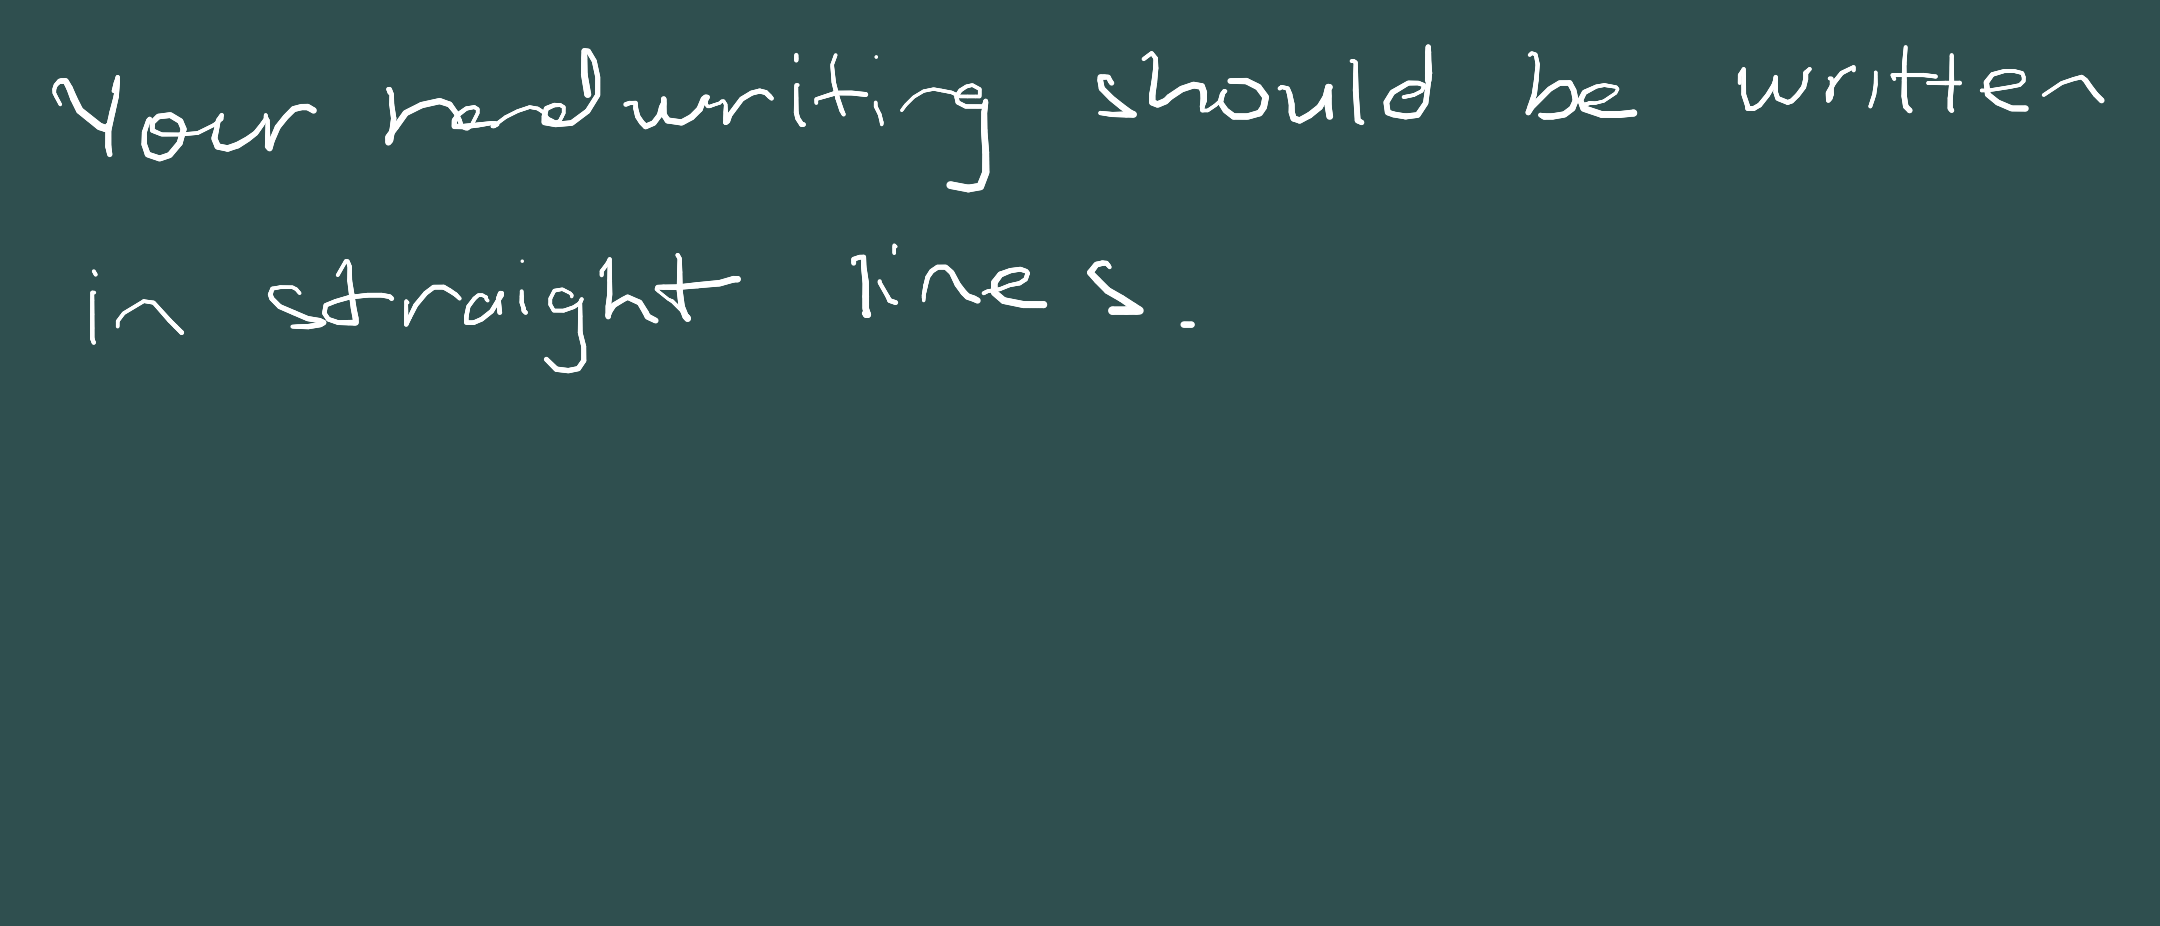 Your handwriting should be written
in straight lines.